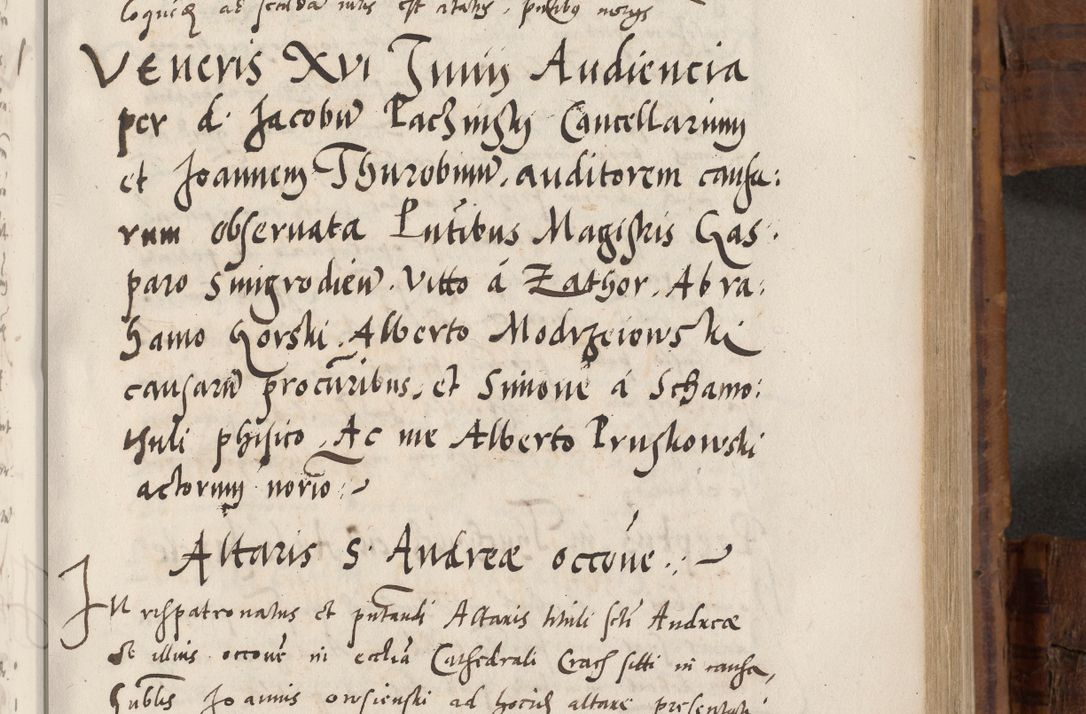 Veneris Xvi Junij Audiencia
per d. Jacobū Paczinsky Cancellarium
et Joannem Thurobinū, auditorem causa:
rum obseruata Pn̄tibus Magistris Gas:
paro Smigrodien̄. Vitto á Zathor. Abra:
hamo Gorski. Alberto Modrzeiowski
causarū procur̄ibus, et Simone á Schamo:
thuli phisico. Ac me Alberto Pruskowski
actorum nor̄io
Altaris S. Andreæ occōne
In re Juspatronatus et pn̄tandi Altaris tituli scti Andreæ
et illius occōne in eccliā Cathedrali Crach siti in causa,
hn̄bles Joannis orsienski ad hoc altare presentati